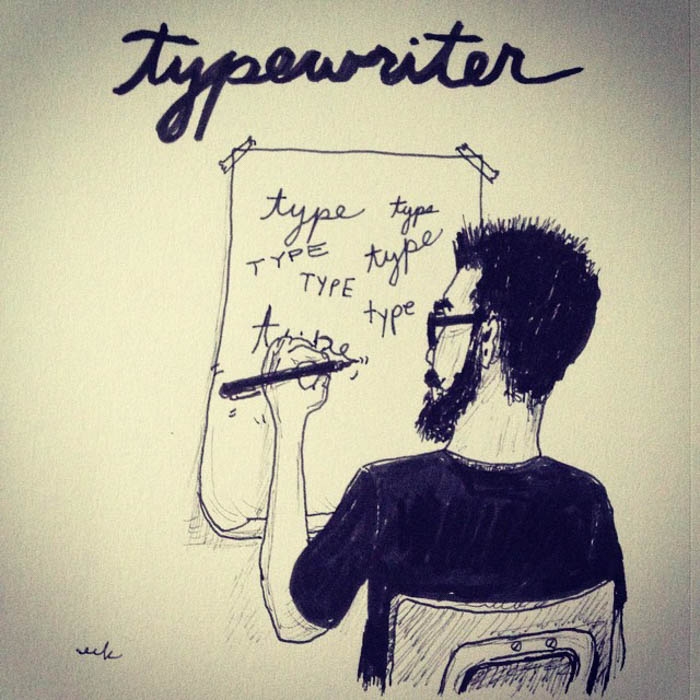 typewriter
type type
TYPE type
TYPE
type
type